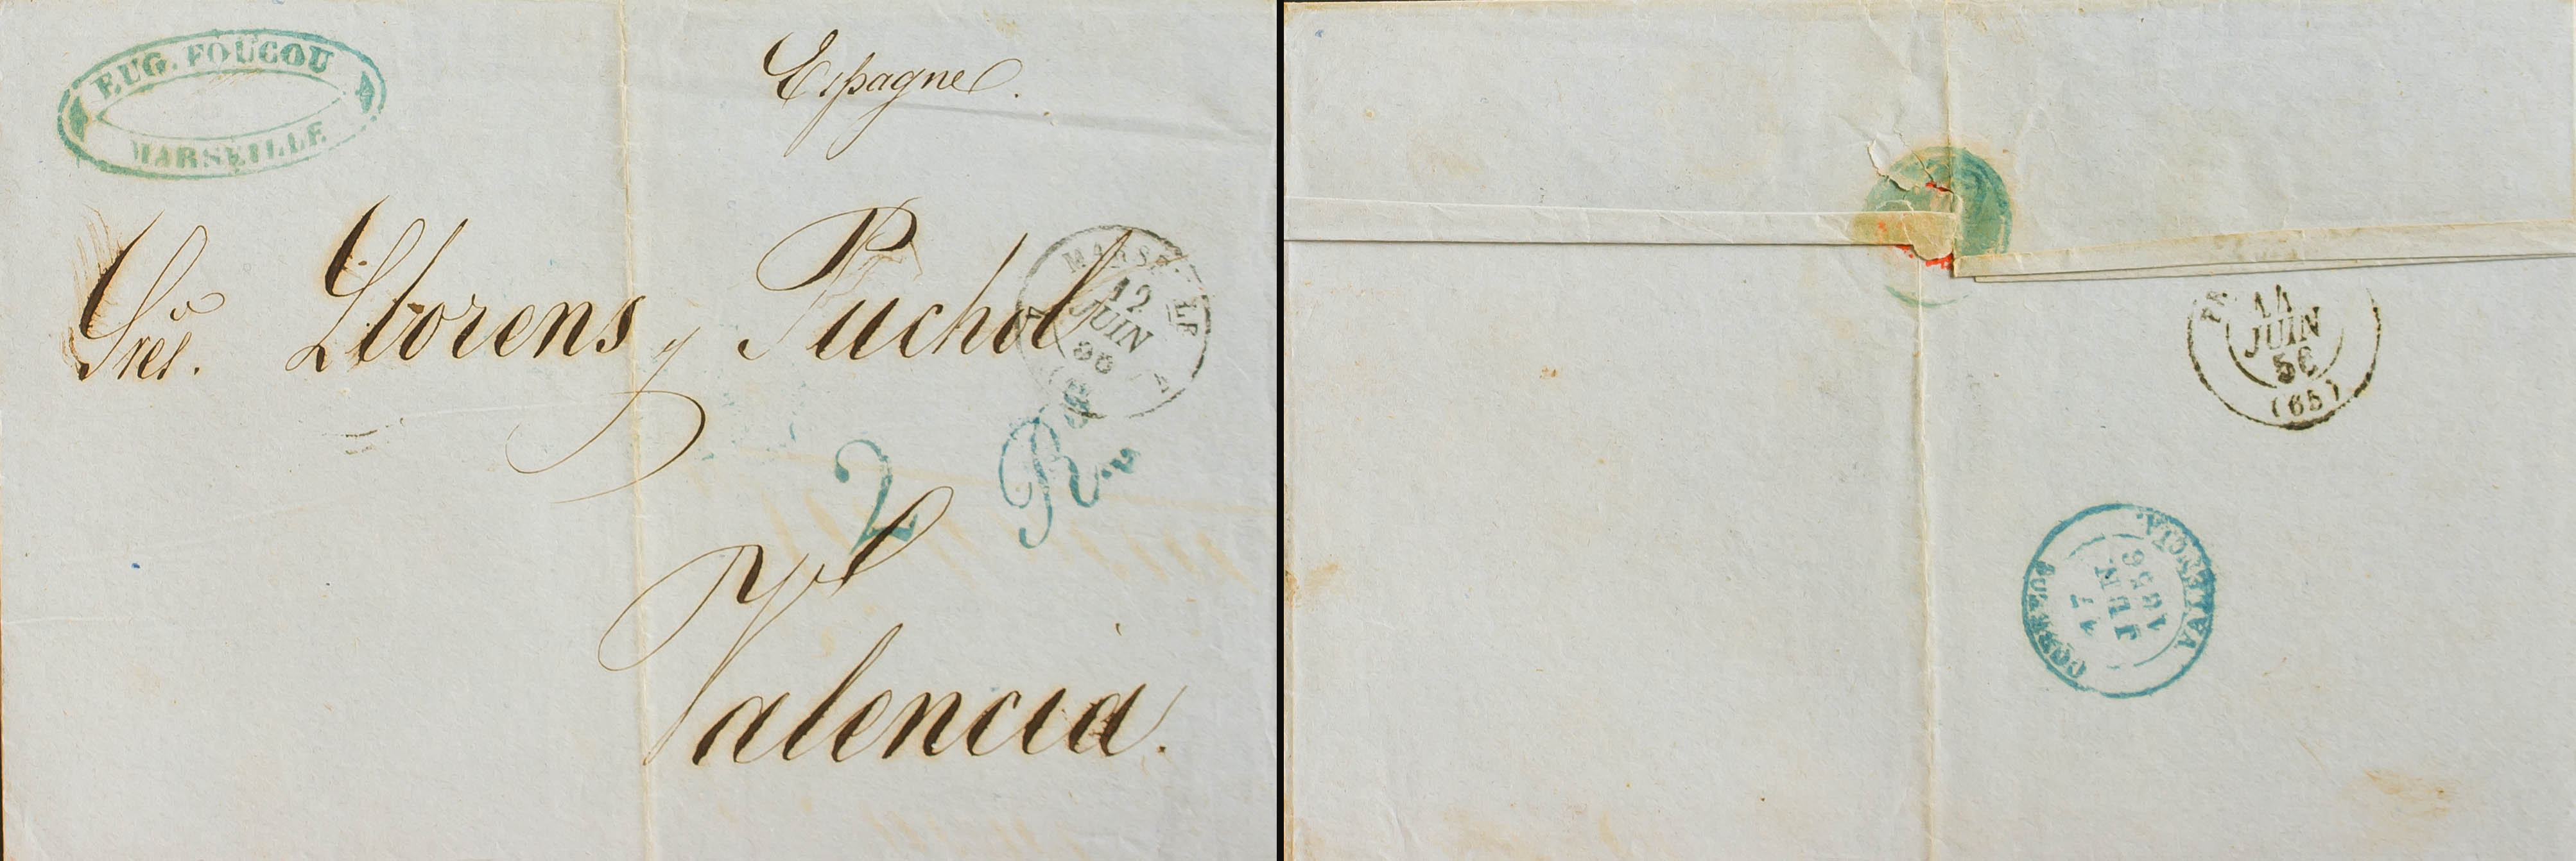 EUG. FOUCOU
MARSEILLE
Espagne.
Sres. Llorens y Puchol
MARSEILLE
12
JUIN
56
2 Rs.
Valencia.
14
JUIN
56
(65)
VALENCIA
17
JUN
1856